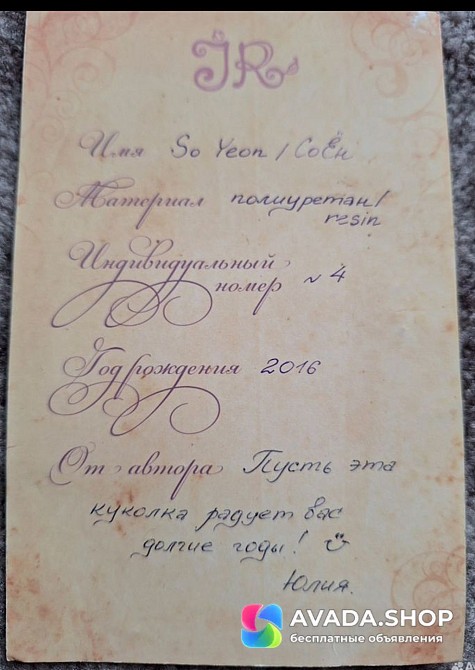 JR
Имя So Yeon / СоЁн
Материал полиуретан/
resin
Индивидуальный
номер ~ 4
Год рождения 2016
От автора Пусть эта
куколка радует вас
долгие годы!
Юлия.
AVADA.SHOP
бесплатные объявления